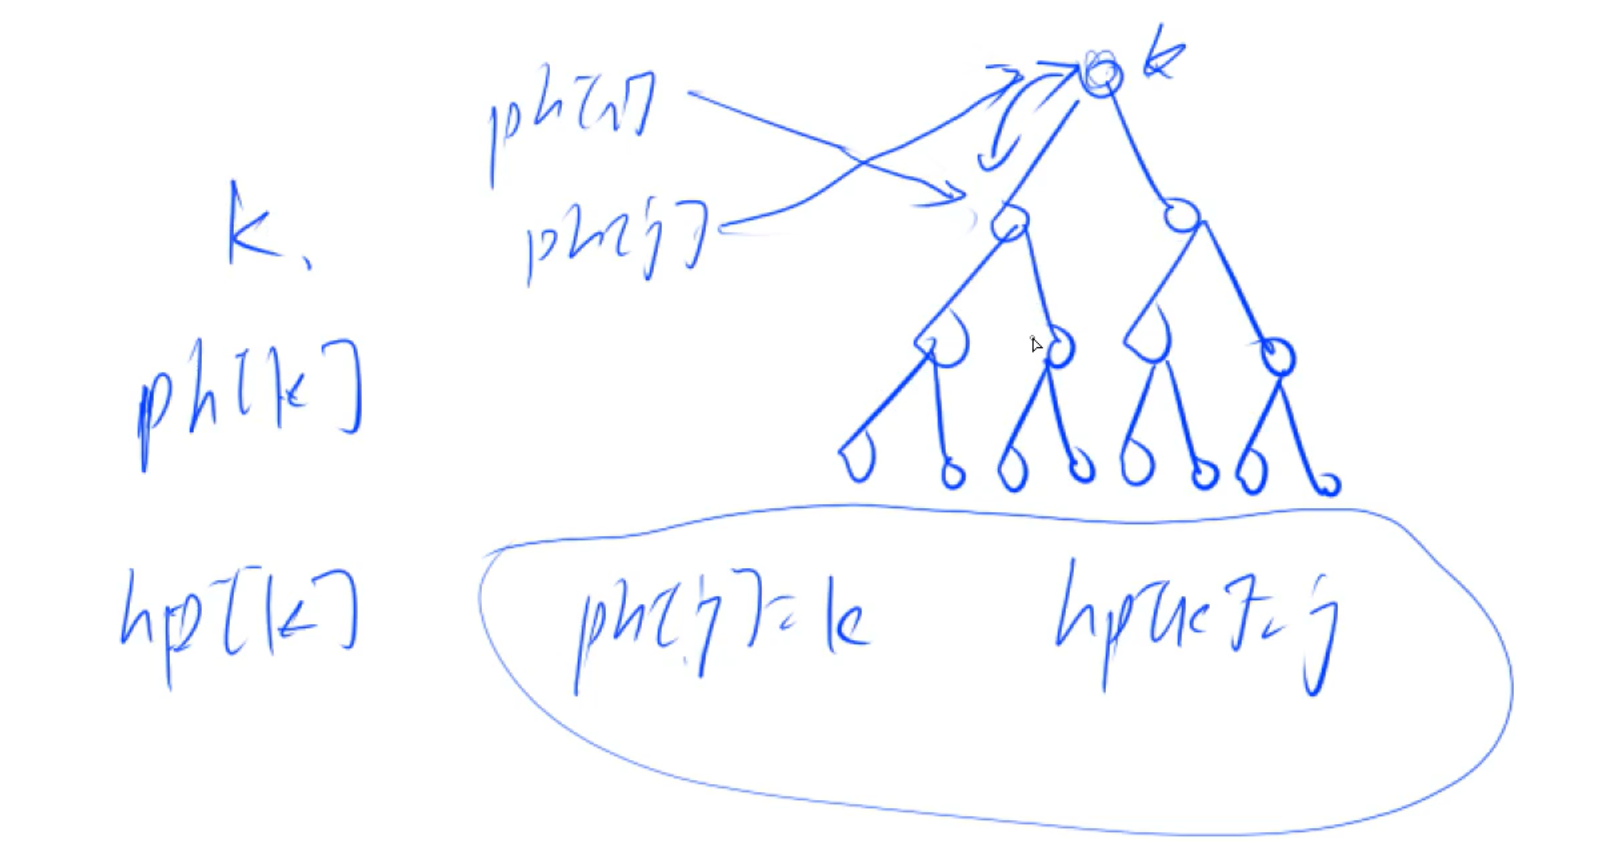 k
ph[i]
ph[j]
k、
ph[k]
hp[k]
ph[j]=k hp[k]=j